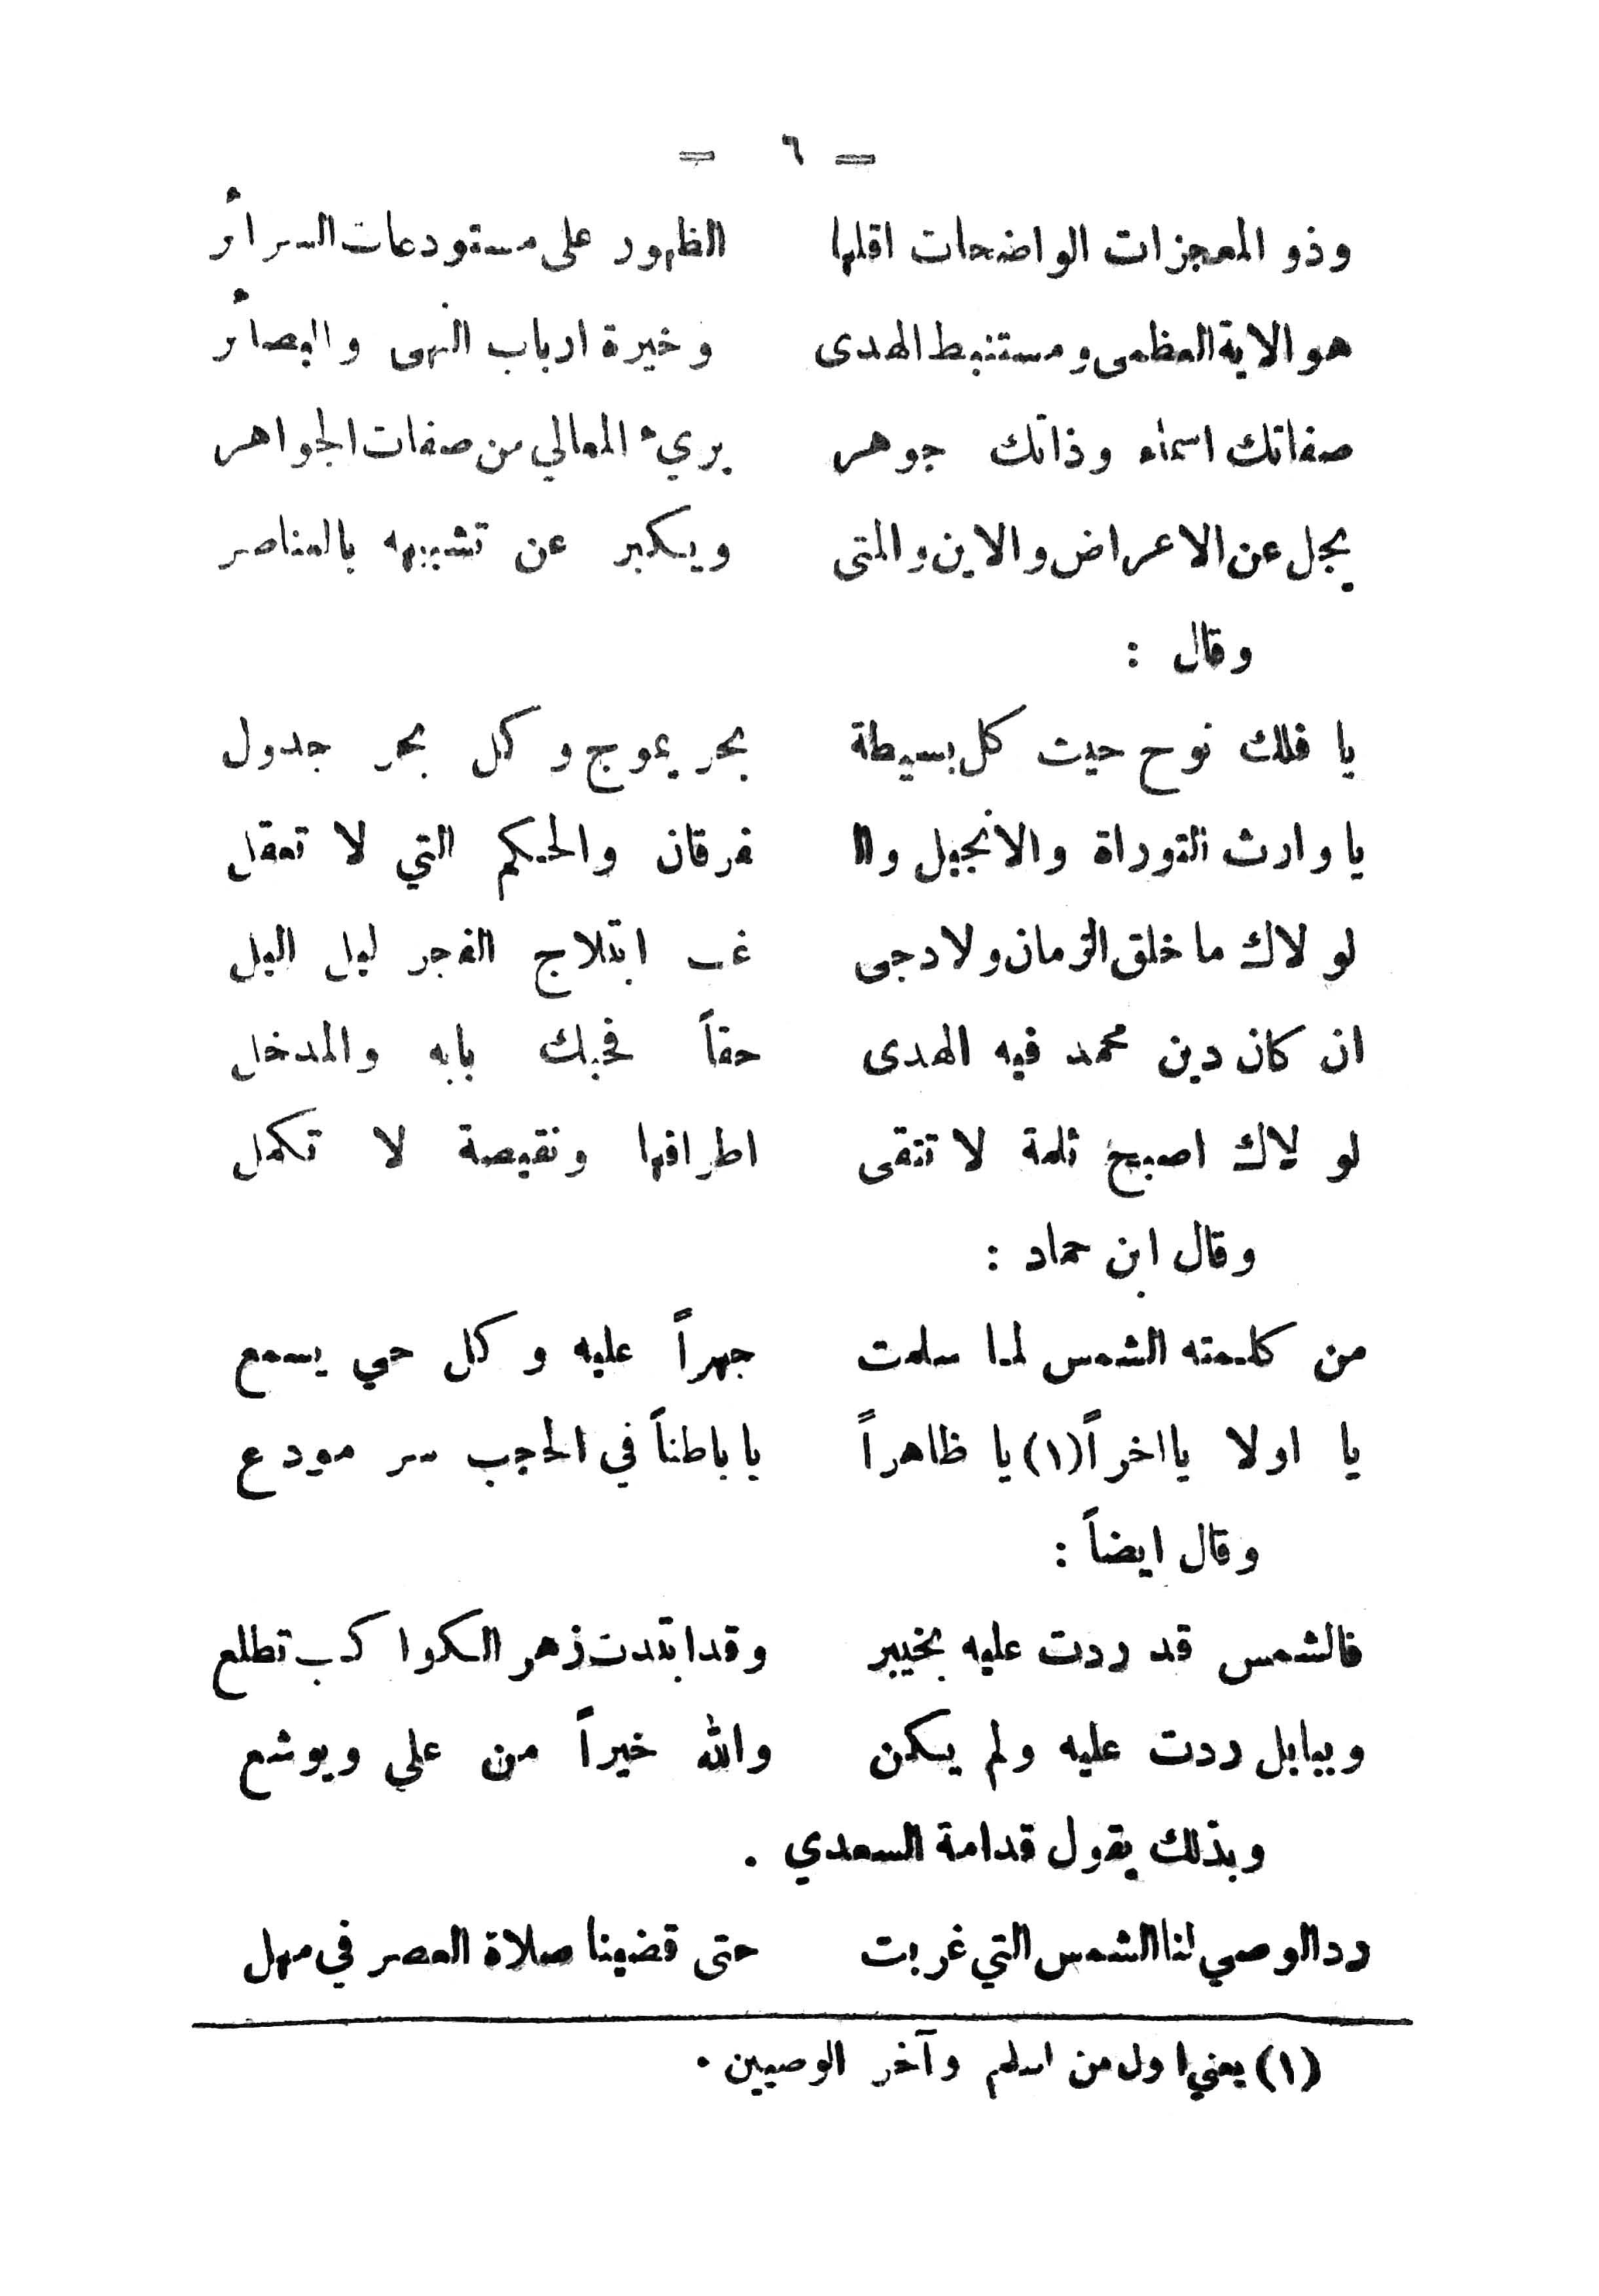 = ٦ =
وذو المعجزات الواضحات اقلها الظهور على مستودعات السرائر
هو الاية العظمى ومستنبط الهدى وخيرة ارباب النهى والبصائر
صفاتك اسماء وذاتك جوهر بريء المعالي من صفات الجواهر
يجل عن الاعراض والاين والمتى ويكبر عن تشبيهه بالعناصر
وقال :
يا فلك نوح حيث كل بسيطة بحر يموج وكل بحر جدول
يا وارث التوراة والانجيل وال فرقان والحكم التي لا تعقل
لو لاك ما خلق الزمان ولا دجى غب ابتلاج الفجر ليل اليل
ان كان دين محمد فيه الهدى حقاً فحبك بابه والمدخل
لو لاك اصبح ثلمة لا تتقى اطرافها ونقيصة لا تكمل
وقال ابن حماد :
من كلمته الشمس لما سلمت جهراً عليه وكل حي يسمع
يا اولا يا اخراً (١) يا ظاهراً يا باطناً في الحجب سر مودع
وقال ايضاً :
فالشمس قد ردت عليه بخيبر وقد ابتدت زهر الكواكب تطلع
وببابل ردت عليه ولم يكن والله خيراً من علي ويوشع
وبذلك يقول قدامة السعدي .
رد الوصي لنا الشمس التي غربت حتى قضينا صلاة العصر في مهل
(١) يعني اول من اسلم وآخر الوصيين .